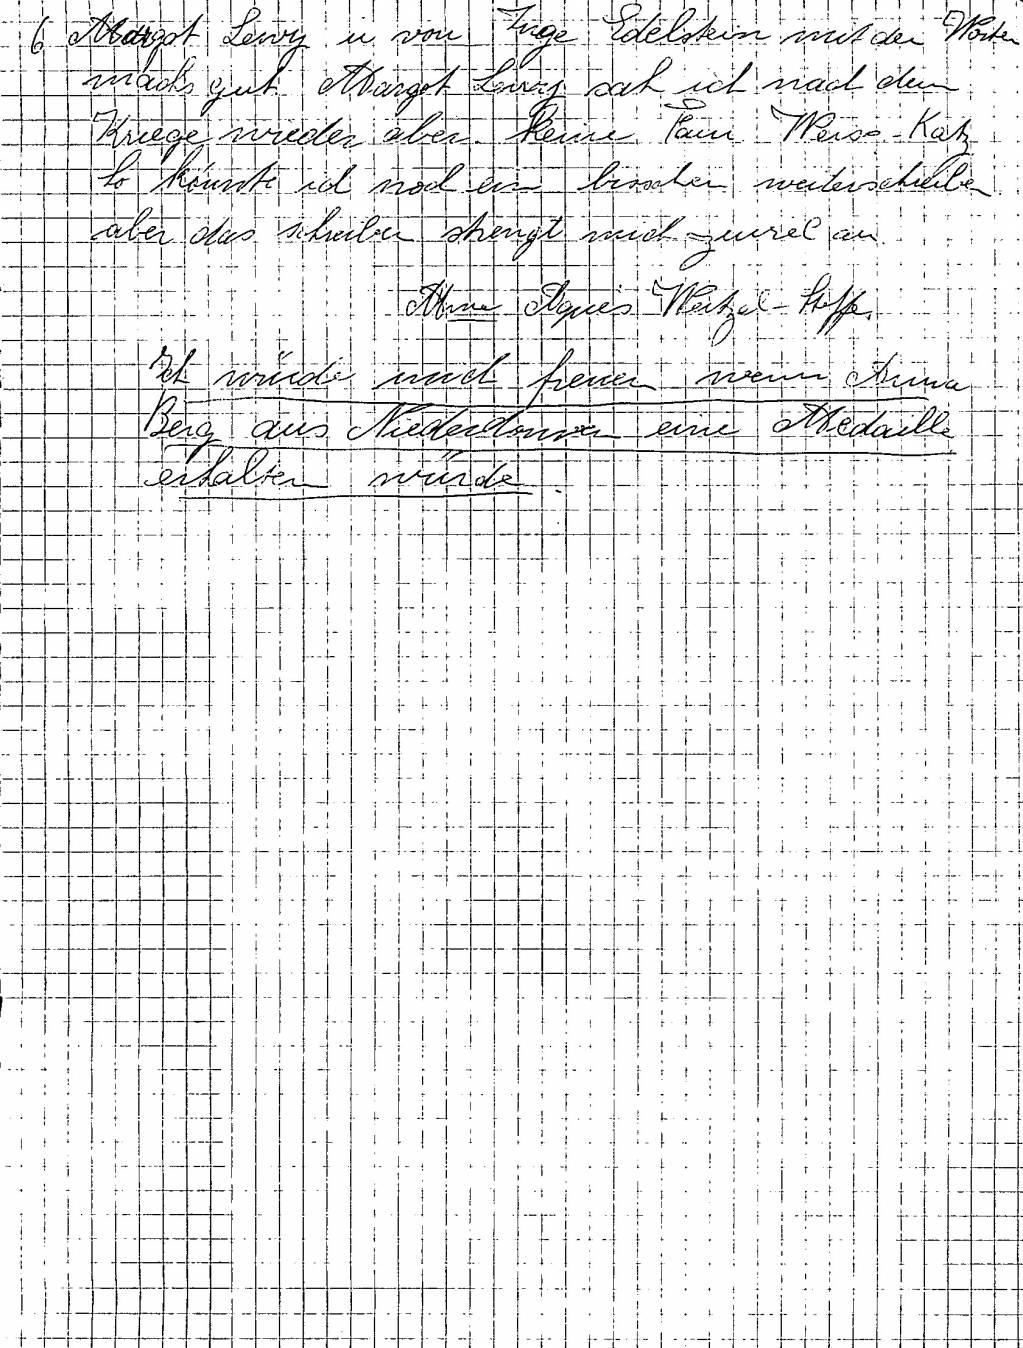 6 Margot Lewy u von Inge Edelstein mit den Worten
machs gut. Margot Lewy sah ich nach dem
Kriege wieder aber keine Weiss-Katz
So könnte ich noch ein bisschen weiterschreiben
aber das schreiben strengt mich zuviel an.
Mme Agnes Weitzel-Steffe
Ich würde mich freuen wenn Anna
Berg aus Niederdonven eine Medaille
erhalten würde.